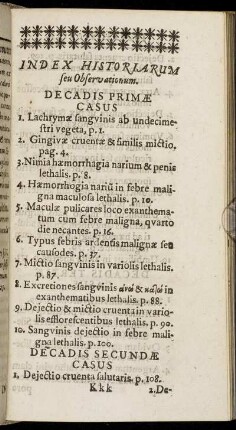 INDEX HISTORIARUM
seu Observationum.
DECADIS PRIMÆ
CASUS
1. Lachrymæ sangvinis ab undecime-
stri vegeta, p. 1.
2. Gingivæ cruentæ & similis mictio,
pag. 4.
3. Nimia hæmorrhagia narium & penis
lethalis. p. 8.
4. Hæmorrhogia nariū in febre mali-
gna maculosa lethalis. p. 10.
5. Maculæ pulicares loco exanthema-
tum cum febre maligna, qvarto
die necantes. p. 16.
6. Typus febris ardensis malignæ seu
causodes. p. 37.
7. Mictio sangvinis in variolis lethalis.
p. 87.
8. Excretiones sangvinis ἄνω & κάτω in
exanthematibus lethalis. p. 88.
9. Dejectio & mictio cruenta in vario-
lis efflorescentibus lethalis. p. 90.
10. Sangvinis dejectio in febre mali-
gna lethalis. p. 100.
DECADIS SECUNDÆ
CASUS
1. Dejectio cruenta salutaris. p. 108.
Kkk 2. De-